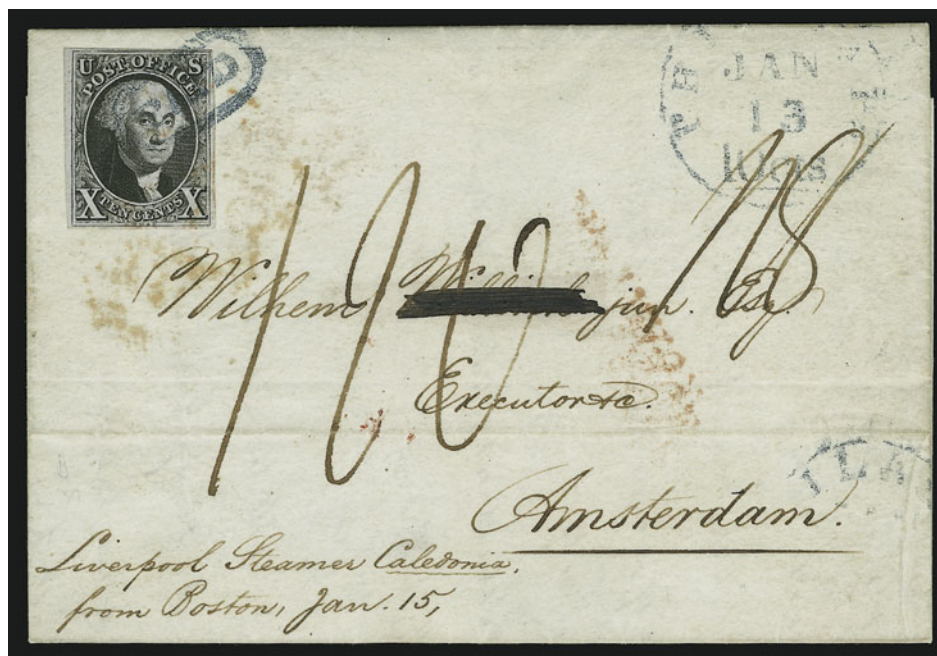 U S
POST OFFICE
X TEN CENTS X
JAN
13
10cts
Wilhem jun. Esq.
Executor &c.
Amsterdam.
Liverpool Steamer Caledonia,
from Boston, Jan. 15,